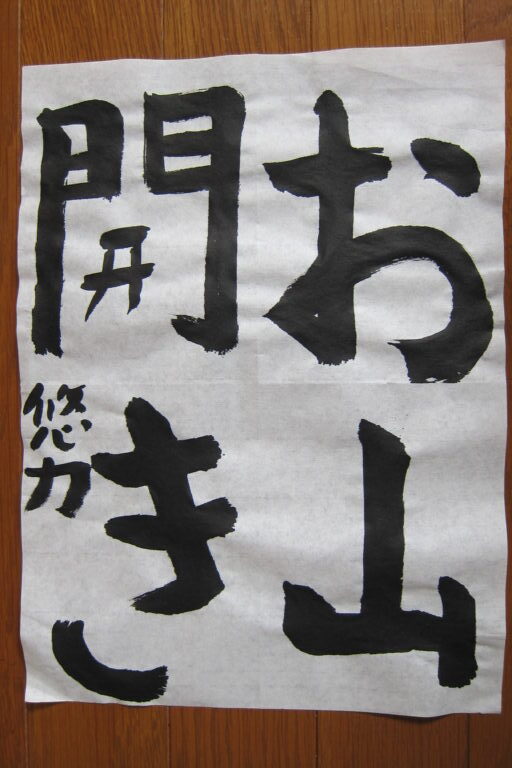 お山
開き
悠力